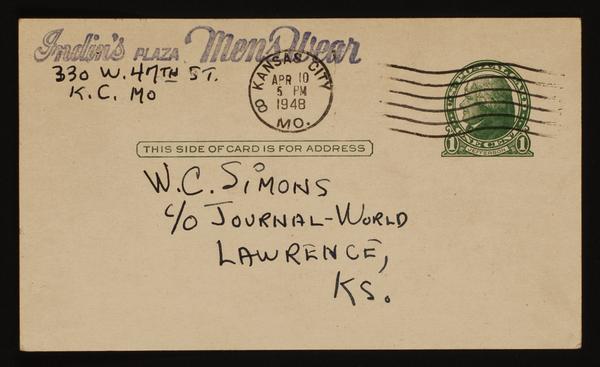 Indin's PLAZA Men's Wear
330 W. 47TH ST.
K.C. MO
KANSAS CITY
8
APR 10
5 PM
1948
MO.
1 JEFFERSON 1
THIS SIDE OF CARD IS FOR ADDRESS
W.C. SIMONS
c/o JOURNAL-WORLD
LAWRENCE,
KS.